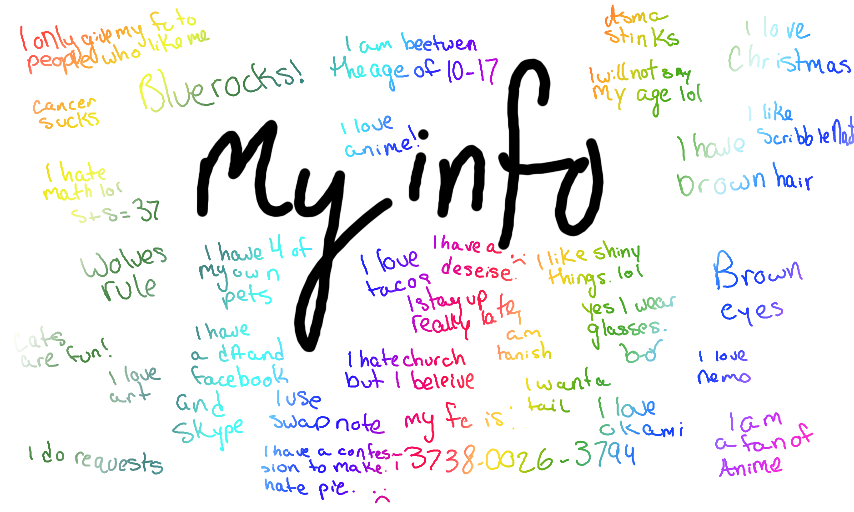 I only give my fc to
people who like me
Bluerocks!
I am beetwen
the age of 10-17
Asma
stinks
I love
Christmas
cancer
sucks
I will not say
my age lol
I love
anime!
My info
I like
ScribbleNat
I have
brown hair
I hate
math lol
s+s=37
Wolves
rule
I have 4 of
my own
pets
I love
tacos
I have a
deseise. :(
I stay up
really late,
I like shiny
things. lol
yes I wear
glasses.
Brown
eyes
cats
are fun!
I love
art
I have
a dA and
facebook
and
skype
I hate church
but I beleive
am
tanish
I want a
tail
I love
nemo
I use
swap note
my fc is:
3738-0026-3794
I love
okami
I am
a fan of
Anime
I do requests
I have a confes-
sion to make. I
hate pie. :(